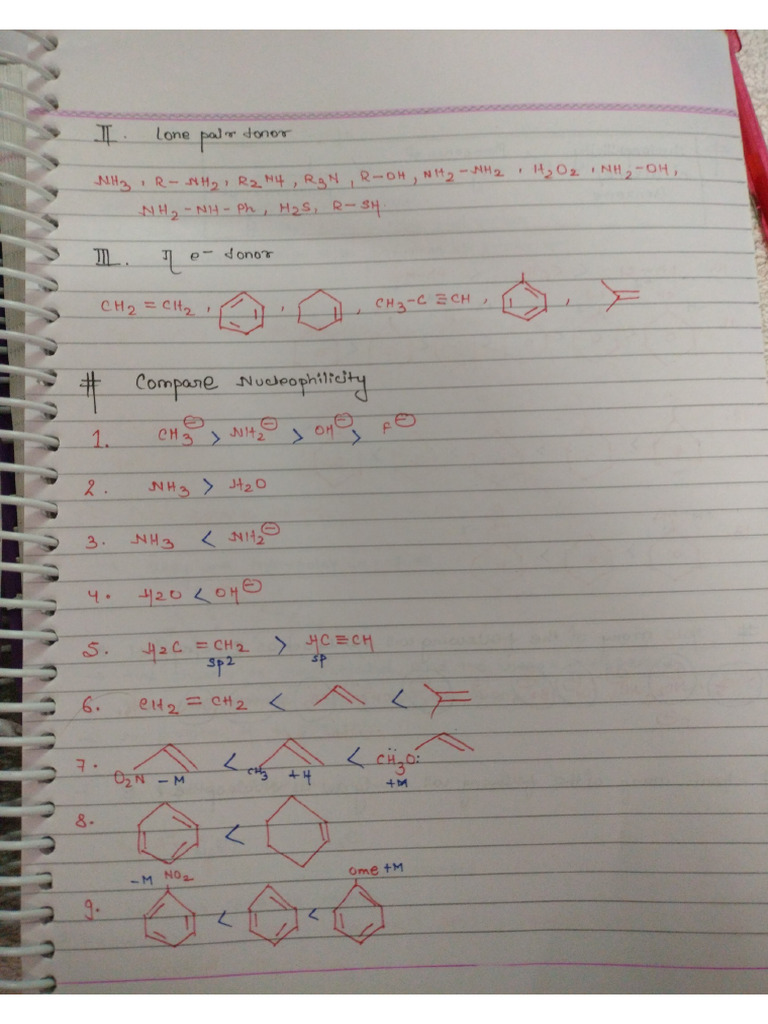 II. Lone pair donor
NH3, R-NH2, R2N4, R3N, R-OH, NH2-NH2, H2O2, NH2-OH,
NH2-NH-Ph, H2S, R-SH.
III. η e- donor
CH2=CH2, , , CH3-C≡CH, ,
# Compare Nucleophilicity
1. CH3⊖ > NH2⊖ > OH⊖ > F⊖
2. NH3 > H2O
3. NH3 < NH2⊖
4. H2O < OH⊖
5. H2C=CH2 > HC≡CH
sp2 sp
6. CH2=CH2 < <
7. O2N -M < CH3 +H < CH3O: +M
8. <
9. -M NO2 < < OMe +M